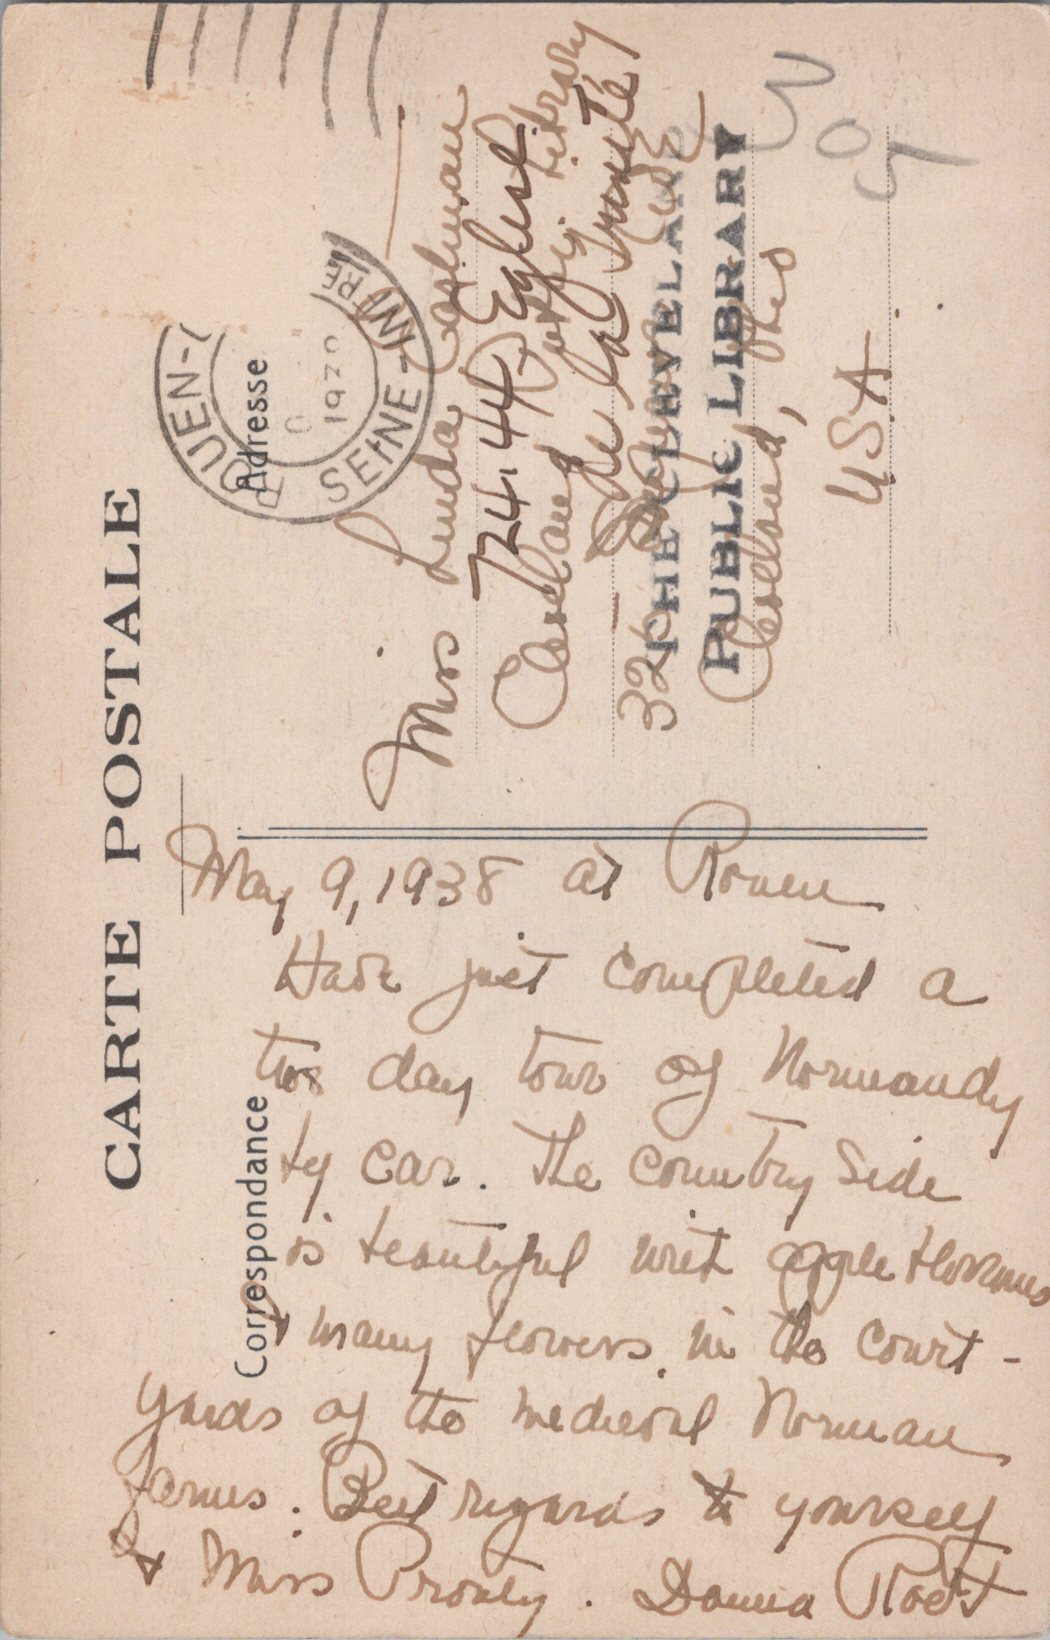 CARTE POSTALE
Correspondance
Adresse
ROUEN-
SEINE-INFRE
May 9, 1938 at Rouen
Have just completed a
two day tour of Normandy
by car. The country side
is beautiful with apple blossoms
+ many flowers in the court-
yards of the medieval Norman
farms. Best regards to yourself
+ Miss Prouty. Donna Root
Miss Linda Eastman
724.44 Eglest
Cleveland Public Library
de la Trinité
325 Superior Ave
THE CLEVELAND
PUBLIC LIBRARY
Cleveland, Ohio
USA